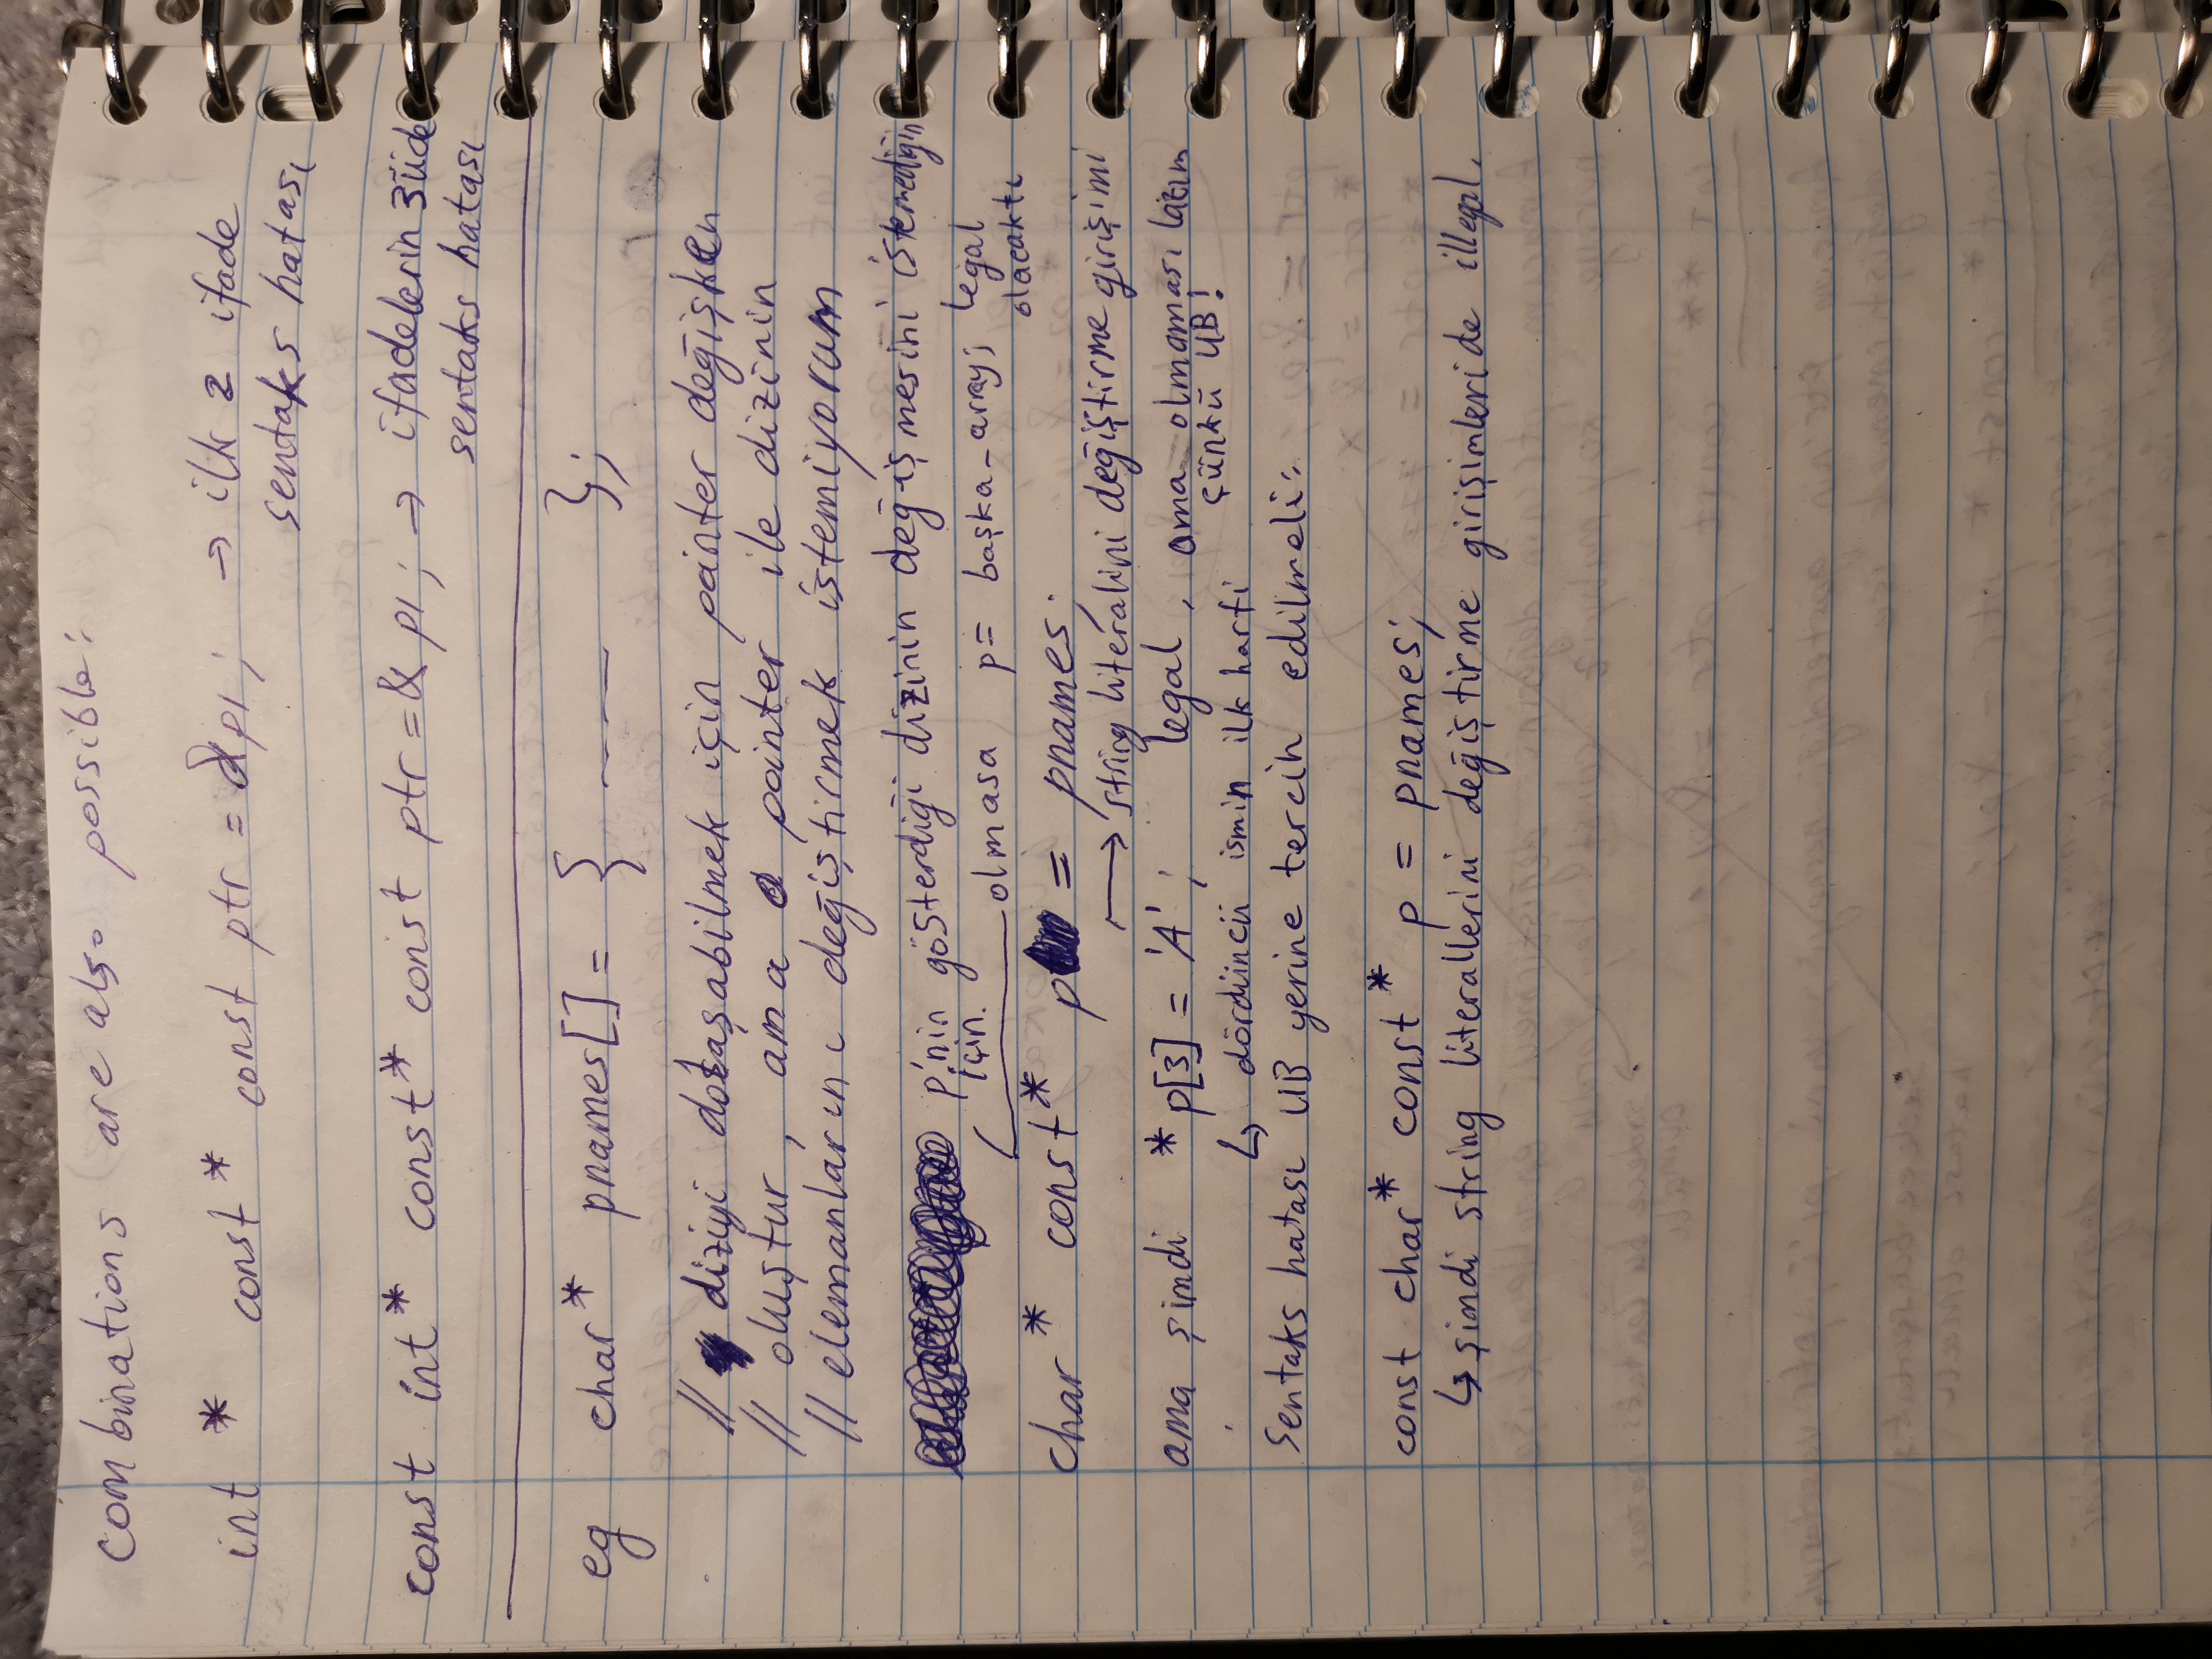 combinations are also possible:
int * const * const ptr = &p1; → ilk 2 ifade
sentaks hatası
const int* const* const ptr = & p1; → ifadelerin 3üde
sentaks hatası
eg char* pnames[] = { ——— };
// diziyi dolaşabilmek için pointer değişken
// oluştur, ama o pointer ile dizinin
// elemanlarını değiştirmek istemiyorum
p'nin gösterdiği dizinin değişmesini istemediğin
için.
olmasa p= başka_array; legal
olacaktı
char * const* p = pnames;
→ string literalini değiştirme girişimi
ama şimdi *p[3] = 'A'; legal, ama olmaması lazım
çünkü UB!
↳ dördüncü ismin ilk harfi
Sentaks hatası UB yerine tercih edilmeli:
const char* const * p = pnames;
↳ şimdi string literallerini değiştirme girişimleri de illegal.